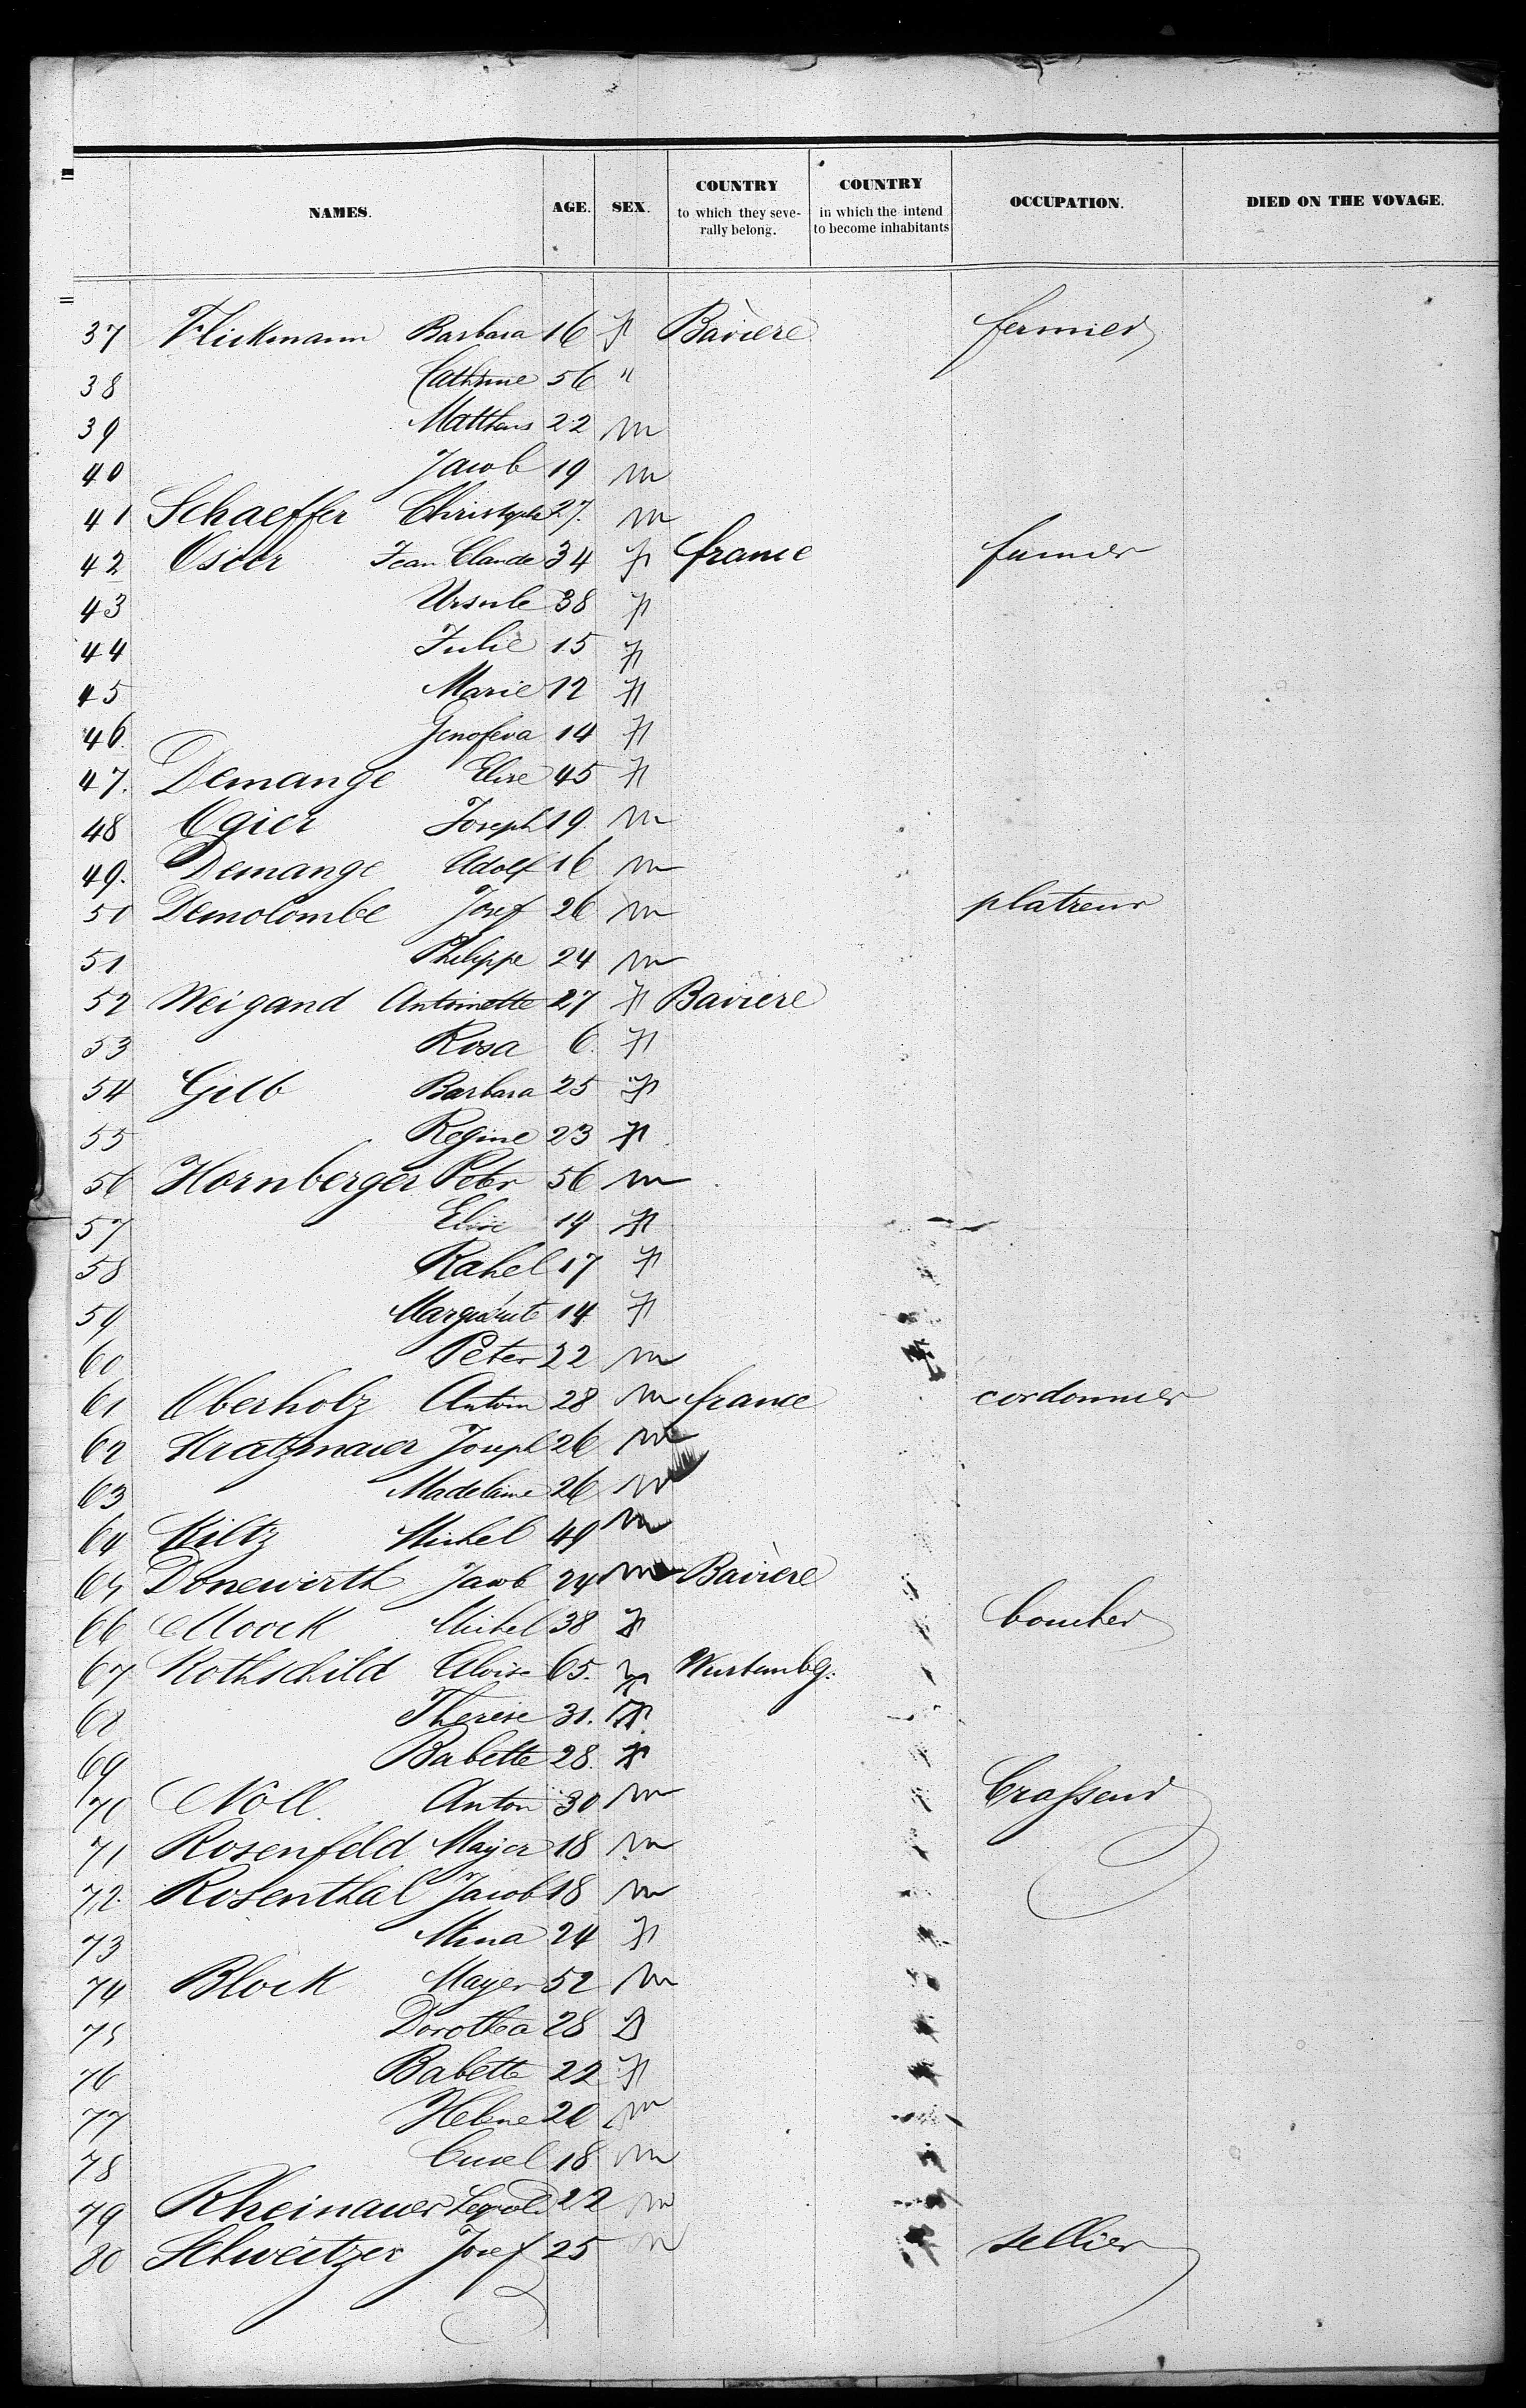 NAMES. AGE. SEX. COUNTRY to which they seve-rally belong. COUNTRY in which the intend to become inhabitants OCCUPATION. DIED ON THE VOVAGE.
37 Flickmann Barbara 16 f Bavière fermier
38 Cathrine 56 "
39 Mattheus 22 m
40 Jacob 19 m
41 Schaeffer Christoph 27. m
42 Jean Claude 34 f france fermier
43 Ursule 38 f
44 Julie 15 f
45 Marie 12 f
46. Genofeva 14 f
47. Demange Elise 45 f
48 Ogier Joseph 19. m
49. Demange Adolf 16 m
50 Demolombe Josef 26 m platreur
51 Philippe 24 m
52 Weigand Antoinette 27 f Bavière
53 Rosa 6. f
54 Gelb Barbara 25 f
55 Regine 23 f
56 Hornberger Petr 56 m
57 Elise 19 f
58 Rahel 17 f
59 14 f
60 Peter 22 m
61 Oberholz Antoin 28 m france cordonnier
62 Kratzmaier Joseph 26 m
63 Madelaine 26 m
64 Kiltz Michel 49 m
65 Donewirth Jacob 24 m Bavière
66 Moock Michel 38 f boucher
67 Rothschild Aloise 65. f Wurtembg.
68 Therese 31. f
69 Babette 28. f
70 Noll. Anton 30 m brasseur
71 Rosenfeld Mayer 18 m
72. Rosenthal Jacob 18 m
73 Mina 24 f
74 Block Mayer 52 m
75 Dorothea 28 f
76 Babette 22 f
77 Helene 20 m
78 18 m
79 Rheinauer Leopold 22 m
80 Schweitzer Josef 25 m sellier